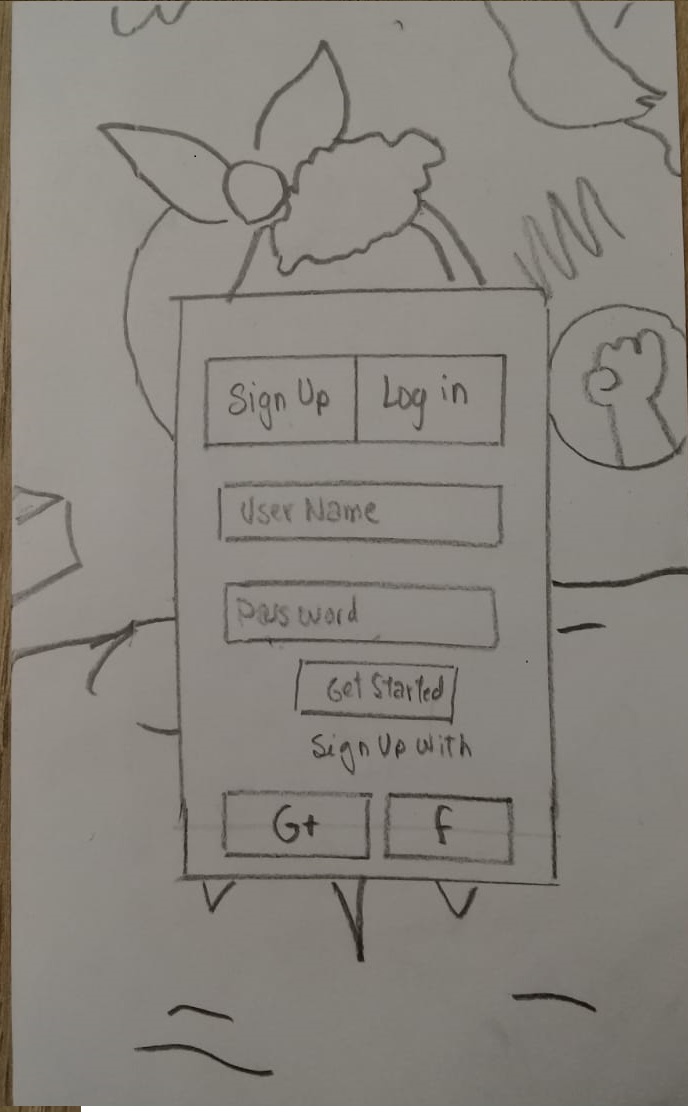 Sign Up Log in
User Name
Password
Get Started
Sign Up With
G+ f